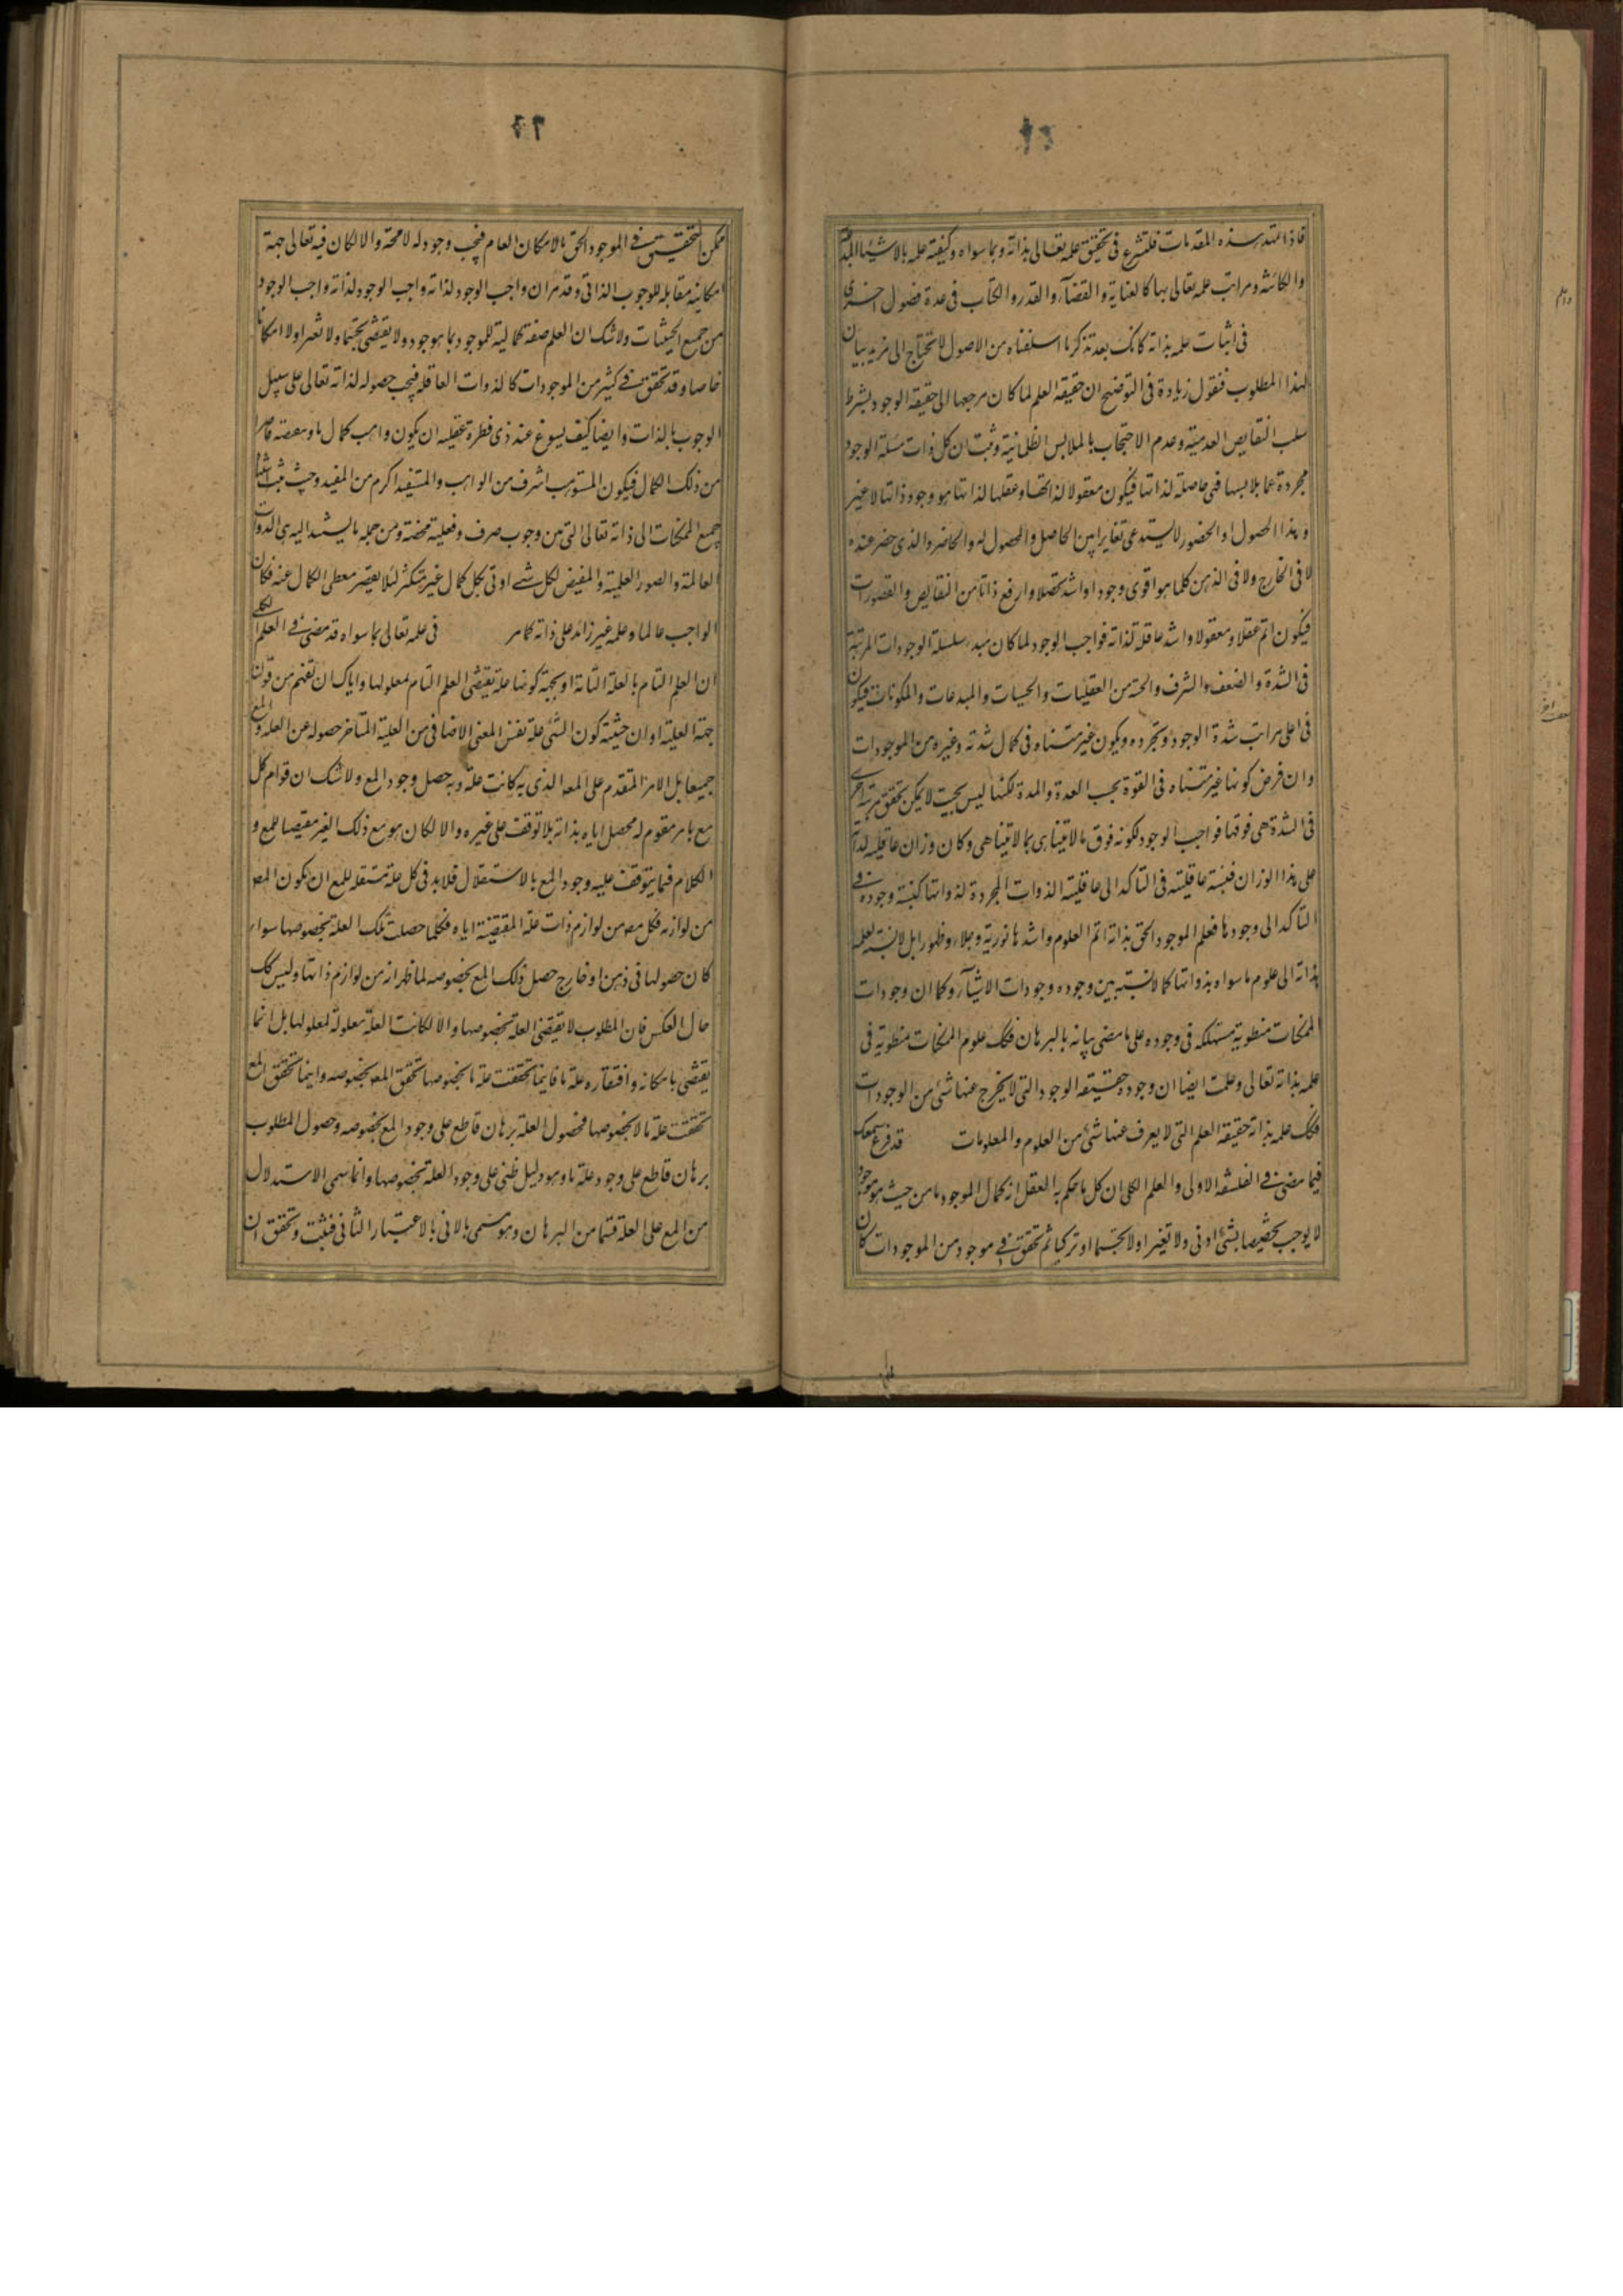 فاذا تمهد هذه المقدمات فلنشرع فی تحقیق علمه تعالی بذاته وبما سواه وکیفیة علمه بالاشیاء المبدعة
والکائنة ومراتب علمه تعالی بها کالعنایة والقضاء والقدر والکتاب فی عدة فصول اخری
فی اثبات علمه بذاته کانک بعد تذکر ما اسلفناه من الاصول لا تحتاج الی مزید بیان
لهذا المطلوب فنقول زیادة فی التوضیح ان حقیقة العلم لما کان مرجعها الی حقیقة الوجود بشرط
سلب النقایص العدمیة وعدم الاحتجاب بالملابس الظلمانیة وثبت ان کل ذات مستقلة الوجود
مجردة عما یلابسها فهی حاصلة لذاتها فیکون معقولا لذاتها وعقلها لذاتها هو وجود ذاتها لا غیر
وهذا الحصول او الحضور لا یستدعی تغایرا بین الحاصل والمحصول له والحاضر والذی حضر عنده
لا فی الخارج ولا فی الذهن کلما هو اقوی وجودا واشد تحصلا وارفع ذاتا من النقایص والقصورات
فیکون اتم عقلا ومعقولا واشد عاقلة لذاته فواجب الوجود لما کان مبدء سلسلة الوجودات المرتبة
فی الشدة والضعف والشرف والخسة من العقلیات والحسیات والمبدعات والمکونات فیکون
فی اعلی مراتب شدة الوجود وتجرده ویکون غیر متناه فی کمال شدته وغیره من الموجودات
وان فرض کونها غیر متناه فی القوة بحسب العدة والمدة لکنها لیس بحیث لا یمکن تحقق مرتبة اخری
فی الشدة هی فوقها فواجب الوجود لکونه فوق ما لا یتناهی بما لا یتناهی وکان وزان عاقلیته لذاته
علی هذا الوزان فنسبة عاقلیته فی التاکد الی عاقلیة الذوات المجردة لذواتها کنسبة وجوده فی
التاکد الی وجودها فعلم الموجود الحق بذاته اتم العلوم واشدها نوریة وجلاء وظهورا بل لا نسبة لعلمه
بذاته الی علوم ما سواه بذواتها کما لا نسبة بین وجوده وجودات الاشیاء وکما ان وجودات
الممکنات منطویة مستهلکه فی وجوده علی ما مضی بیانه بالبرهان فکک علوم الممکنات منطویة فی
علمه بذاته تعالی وعلمت ایضا ان وجوده حقیقة الوجود التی لا یخرج عنها شیء من الوجودات
فکک علمه بذاته حقیقة العلم التی لا یعزف عنها شیء من العلوم والمعلومات قد قرع سمعک
فیما مضی فی الفلسفة الاولی والعلم الکلی ان کل ما یحکم به العقل انه کمال الموجود ما من حیث هو موجود
لا یوجب تخصیصا بشیء ادنی ولا تغیرا ولا تجسما او ترکیبا ثم تحقق فی موجود من الموجودات کان
ممکن التحقیق فی الموجود الحق بالامکان العام فیجب وجوده له لا محة والا لکان فیه تعالی جهة
امکانیه مقابله للوجوب الذاتی وقد مر ان واجب الوجود لذاته واجب الوجود لذاته واجب الوجود
من جمیع الحیثیات ولا شک ان العلم صفة کمالیة للموجود بما هو موجود ولا یقتضی تجسما ولا تغیرا ولا امکانا
خاصا وقد تحقق فی کثیر من الموجودات کالذوات العاقله فیجب حصوله لذاته تعالی علی سبیل
الوجوب بالذات وایضا کیف یسوغ عند ذی فطرة عقلیه ان یکون واهب کمال ما ومفیضه قاصرا
من ذلک الکمال فیکون المستوهب اشرف من الواهب والمستفید اکرم من المفید وحیث ثبت استناد
جمیع الممکنات الی ذاته تعالی التی من وجوب صرف وفعلیة محضة ومن جمله ما یستند الیه هی الذوات
العالمة والصور العلمیة والمفیض لکل شیء اوفی بکل کمال غیر متکثر لئلا یقصر معطی الکمال عنه فکان
الواجب عالما وعلمه غیر زائد علی ذاته کما مر فی علمه تعالی بما سواه قد مضی فی العلم الکلی
ان العلم التام بالعلة التامة او بجهة کونها علة یقتضی العلم التام لمعلولها وایاک ان تفهم من قولنا
جهة العلیة او ان حیثیة کون الشیء علة نفس المعنی الاضافی من العلیة المتاخر حصوله عن العلة والمع
جمیعا بل الامر المتقدم علی المع الذی به کانت علة وبه حصل وجود المع ولا شک ان قوام کل
مع بامر مقوم له محصل ایاه بذاته بلا توقف علی غیره والا لکان هو مع ذلک الغیر مقتضیا للمع و
الکلام فیما یتوقف علیه وجود المع بالاستقلال فلا بد فی کل علة مستقله للمع ان یکون المع
من لوازمه فکل مع من لوازم ذات علة المقتضیة ایاه فکلما حصلت تلک العلة بخصوصها سواء
کان حصولها فی ذهن او خارج حصل ذلک المع بخصوصه لما ظهر انه من لوازم ذاتها ولیس کک
حال العکس فان المطلوب لا یقتضی العلة بخصوصها والا لکانت العلة معلولة لمعلولها بل انما
یقتضی بامکانه وافتقاره علة ما فاینما تحققت علة ما بخصوصها تحقق المع بخصوصه واینما تحقق المع
تحققت علة ما لا بخصوصها فحصول العلة برهان قاطع علی وجود المع بخصوصه وحصول المطلوب
برهان قاطع علی وجود علة ما وهو دلیل ظنی علی وجود العلة بخصوصها وانما سمی الاستدلال
من المع علی العلة قسما من البرهان وهو مسمی بالانی بالاعتبار الثانی فثبت وتحقق ان